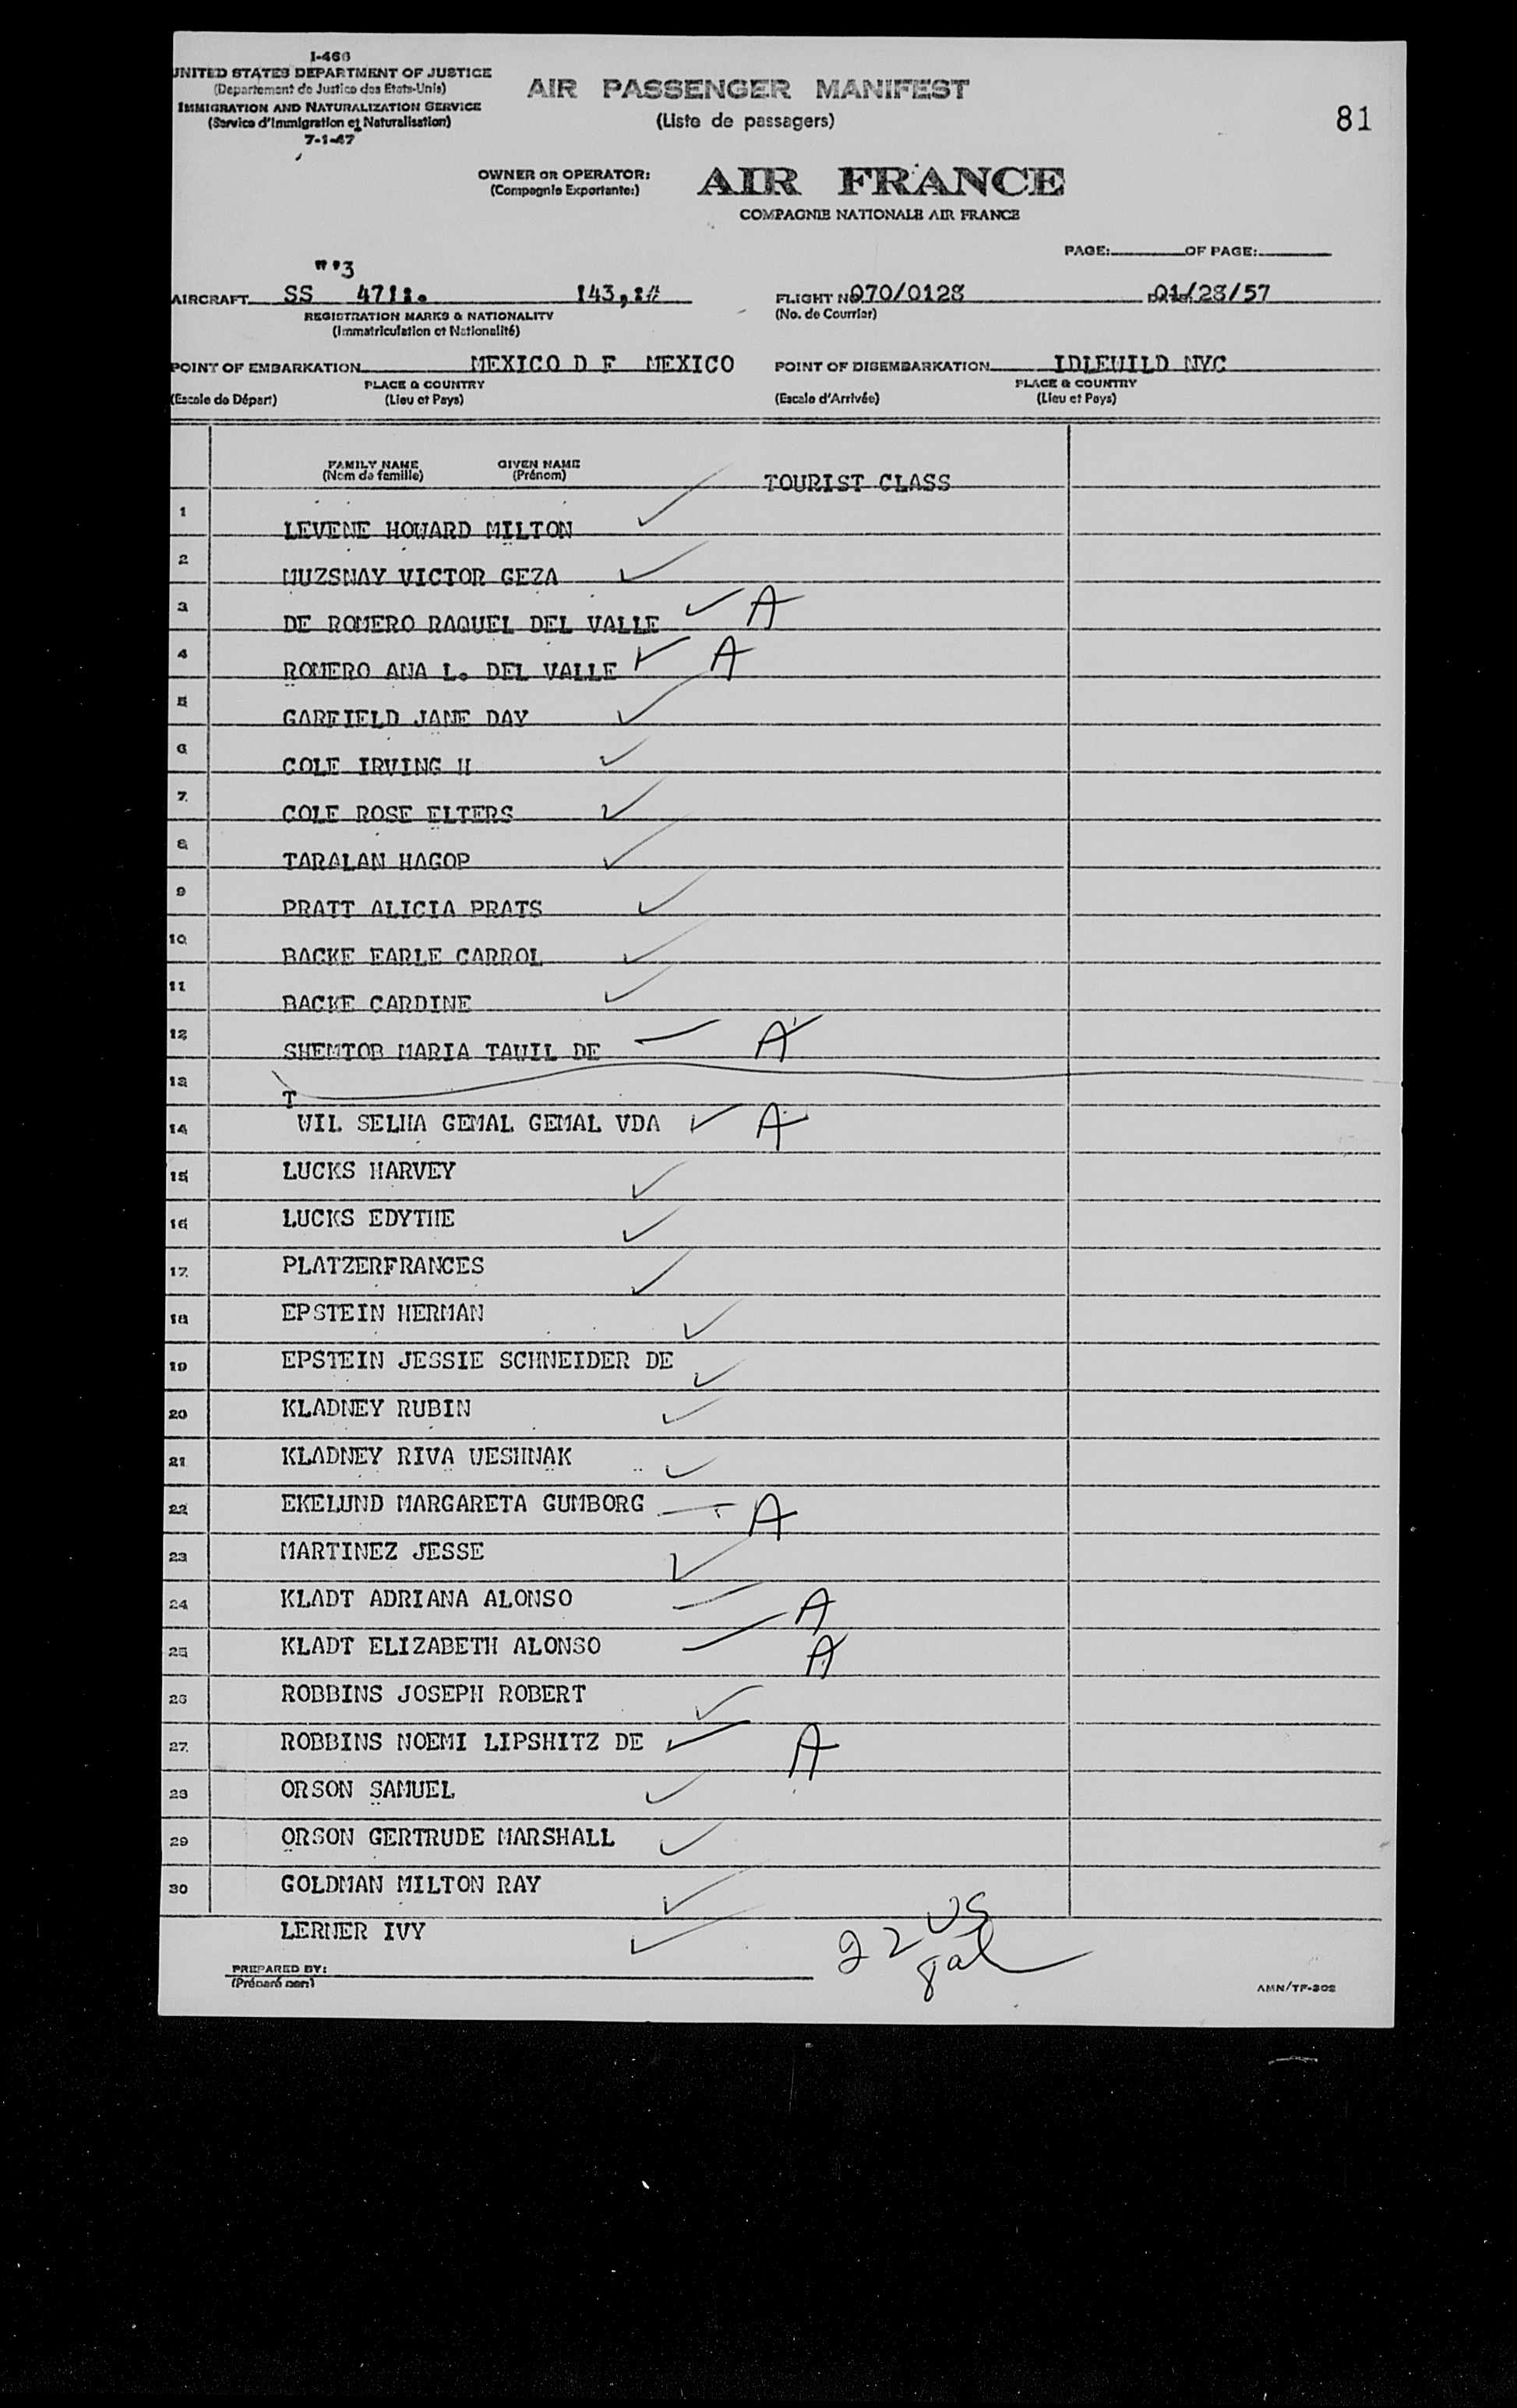 I-466
UNITED STATES DEPARTMENT OF JUSTICE
(Departement de Justice des Etats-Unis)
IMMIGRATION AND NATURALIZATION SERVICE
(Service d'Immigration et Naturalisation)
7-1-47
AIR PASSENGER MANIFEST
(Liste de passagers)
81
OWNER OR OPERATOR: AIR FRANCE
(Compagnie Exportante:)
COMPAGNIE NATIONALE AIR FRANCE
PAGE: OF PAGE:
"'3
AIRCRAFT SS 471!. 143,!# FLIGHT No 070/0128 01/28/57
REGISTRATION MARKS & NATIONALITY (No. de Courrier)
(Immatriculation et Nationalité)
POINT OF EMBARKATION MEXICO D F MEXICO POINT OF DISEMBARKATION IDLEWILD NYC
PLACE & COUNTRY PLACE & COUNTRY
(Escale de Départ) (Lieu et Pays) (Escale d'Arrivée) (Lieu et Pays)
FAMILY NAME GIVEN NAME
(Nom de famille) (Prénom) TOURIST CLASS
1 LEVENE HOWARD MILTON
2 MUZSNAY VICTOR GEZA
3 DE ROMERO RAQUEL DEL VALLE A
4 ROMERO ANA L. DEL VALLE A
5 GARFIELD JANE DAY
6 COLE IRVING H
7 COLE ROSE ELTERS
8 TARALAN HAGOP
9 PRATT ALICIA PRATS
10 BACKE EARLE CARROL
11 BACKE CARDINE
12 SHEMTOB MARIA TAWIL DE A
13 T
14 WIL SELHA GEMAL GEMAL VDA A
15 LUCKS HARVEY
16 LUCKS EDYTHE
17 PLATZERFRANCES
18 EPSTEIN HERMAN
19 EPSTEIN JESSIE SCHNEIDER DE
20 KLADNEY RUBIN
21 KLADNEY RIVA WESHNAK
22 EKELUND MARGARETA GUMBORG A
23 MARTINEZ JESSE
24 KLADT ADRIANA ALONSO A
25 KLADT ELIZABETH ALONSO A
26 ROBBINS JOSEPH ROBERT
27 ROBBINS NOEMI LIPSHITZ DE A
28 ORSON SAMUEL
29 ORSON GERTRUDE MARSHALL
30 GOLDMAN MILTON RAY
LERNER IVY
22 US
8 al
PREPARED BY:
(Préparé par)
AMN/TF-302